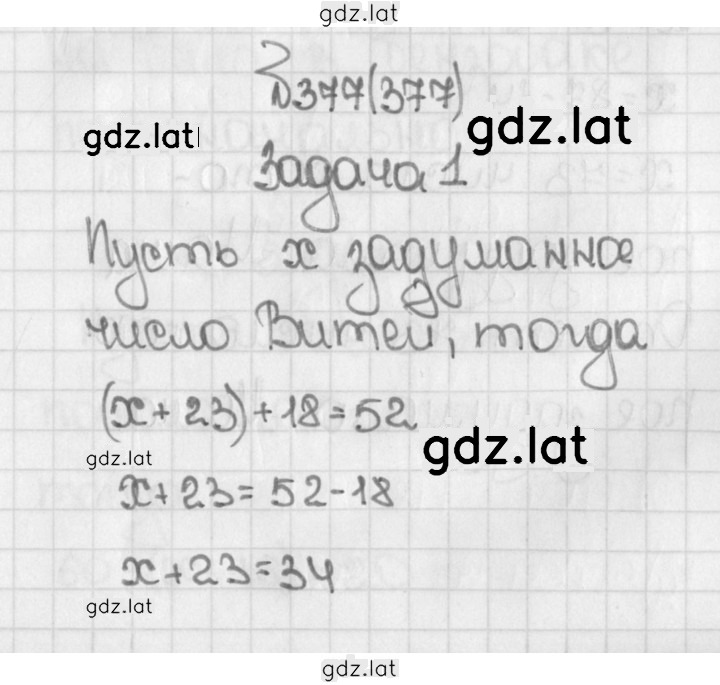 gdz.lat
№377(377)
gdz.lat
gdz.lat
Задача 1
Пусть x задуманное
число Витей, тогда
(x+23)+18=52
gdz.lat
gdz.lat
x+23=52-18
x+23=34
gdz.lat
gdz.lat